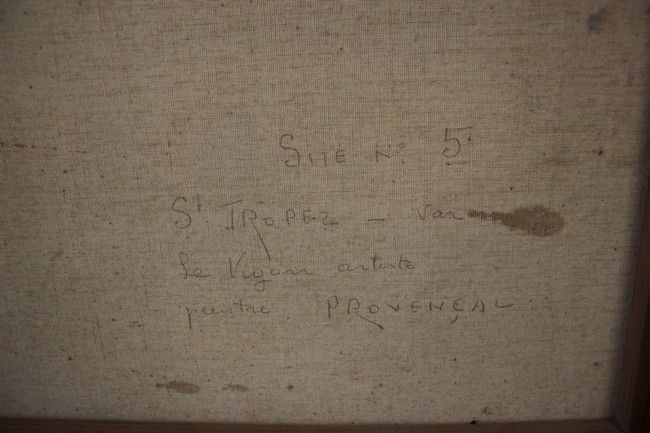 SITE N° 5
St TROPEZ - Var
Le Vigon artiste
peintre PROVENÇAL